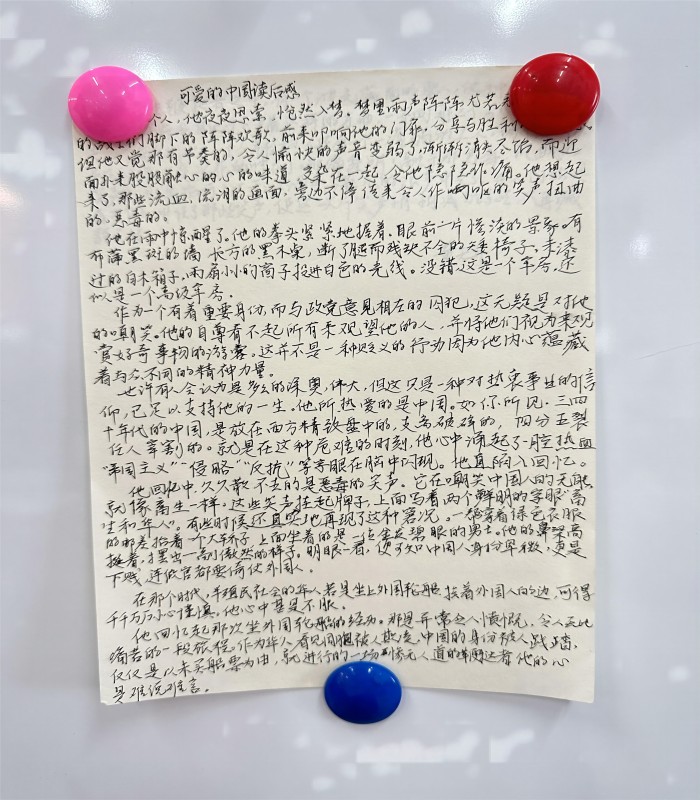 可爱的中国读后感
个人，他夜夜思索，恍然入梦。梦里雨声阵阵，尤若
们脚下的阵阵欢歌，前来叩响他的门扉，分享与胜利
但他又觉那有节奏的，令人愉快的声音变弱了，渐渐消失不见，而迎
面扑来股股的心的味道，交杂在一起，令他隐隐作痛。他想起
来了，那些流血，流泪的画面，旁边不停传来令人作呕的笑声扭曲
的，恶毒的。
他在雨中惊醒了。他的拳头紧紧地握着。眼前一片惨淡的景象。有
布满黑斑的墙，长方的黑木桌，断了腿而残缺不全的矮椅子，未漆
过的白木箱子，两扇小的窗子投进白色的光线。没错，这是一个牢房，还
似是一个高级牢房。
作为一个有着重要身份，而与政党意见相左的囚犯，这无疑是对他
的嘲笑。他的自尊看不起所有来观望他的人，并将他们视为来观
赏好奇事物的游客，这并不是一种贬义的行为因为他内心蕴藏
着与众不同的精神力量。
也许有人会认为是多么的深奥，伟大，但这只是一种对热衷事业的信
仰，已足以支持他的一生。他所热爱的是中国。如你所见，三四
十年代的中国，是放在西方精致盘中的，支离破碎的，四分五裂
任人宰割的。就是在这种危难的时刻，他心中涌起了一腔热血
“帝国主义”“侵略”“反抗”等字眼在脑中闪现。他直陷入回忆。
他回忆中，久久散不去的是恶毒的笑声。它在嘲笑中国人的无能
就像畜生一样，这些笑声挂起牌子，上面写着两个鲜明的字眼“畜
生和华人”。有些时候还真实地再现了这种窘况。一帮穿着绿色衣服
的邮差抬着一个大轿子，上面坐着的是一位金发碧眼的男士。他的鼻梁高
挺着，摆出一副傲然的样子。明眼一看，便可知中国人身份卑微，更是
下贱，连做官都要倚仗外国人。
在那个时代，半殖民社会的华人若是坐上外国轮船，挨着外国人的边，可得
千万万小心谨慎。他心中甚是不服。
他回忆起那次坐外国轮船的经历。那是异常令人愤慨，令人无比
痛苦的一段旅程。作为华人，看见同胞被人欺凌，中国的身份被人践踏，
仅仅是以未买船票为由，就进行的一场惨无人道的他的心
是难说难言。